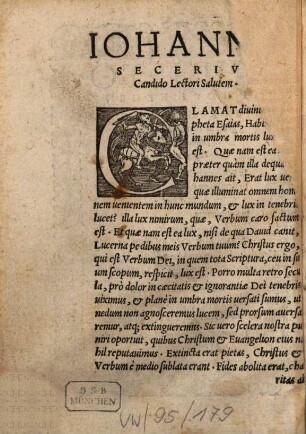 IOHANN
SECERIV
Candido Lectori Salutem.
CLAMAT diuin
pheta Esaias, Habi
in umbra mortis lux
est. Quæ nam est ea
præter quàm illa de qua
hannes ait, Erat lux ue
quæ illuminat omnem hom
nem uenientem in hunc mundum, & lux in tenebri
lucet? illa lux nimirum, quæ, Verbum caro factum
est. Et quæ nam est ea lux, nisi de qua Dauid canit,
Lucerna pedibus meis Verbum tuum? Christus ergo,
qui est Verbum Dei, in quem tota Scriptura, ceu in su
um scopum, respicit, lux est. Porro multa retro secu
la, prò dolor in cæcitatis & ignorantiæ Dei tenebris
uiximus, & planè in umbra mortis uersati sumus, ut
nedum non agnosceremus lucem, sed prorsum auersa
remur, atq; extingueremus. Sic uero scelera nostra pu
niri oportuit, quibus Christum & Euangelion eius ni
hil reputauimus. Extincta erat pietas, Christus &
Verbum è medio sublata erant. Fides abolita erat, cha
ritas al
B S B
MÜNCHEN
VN/95/179